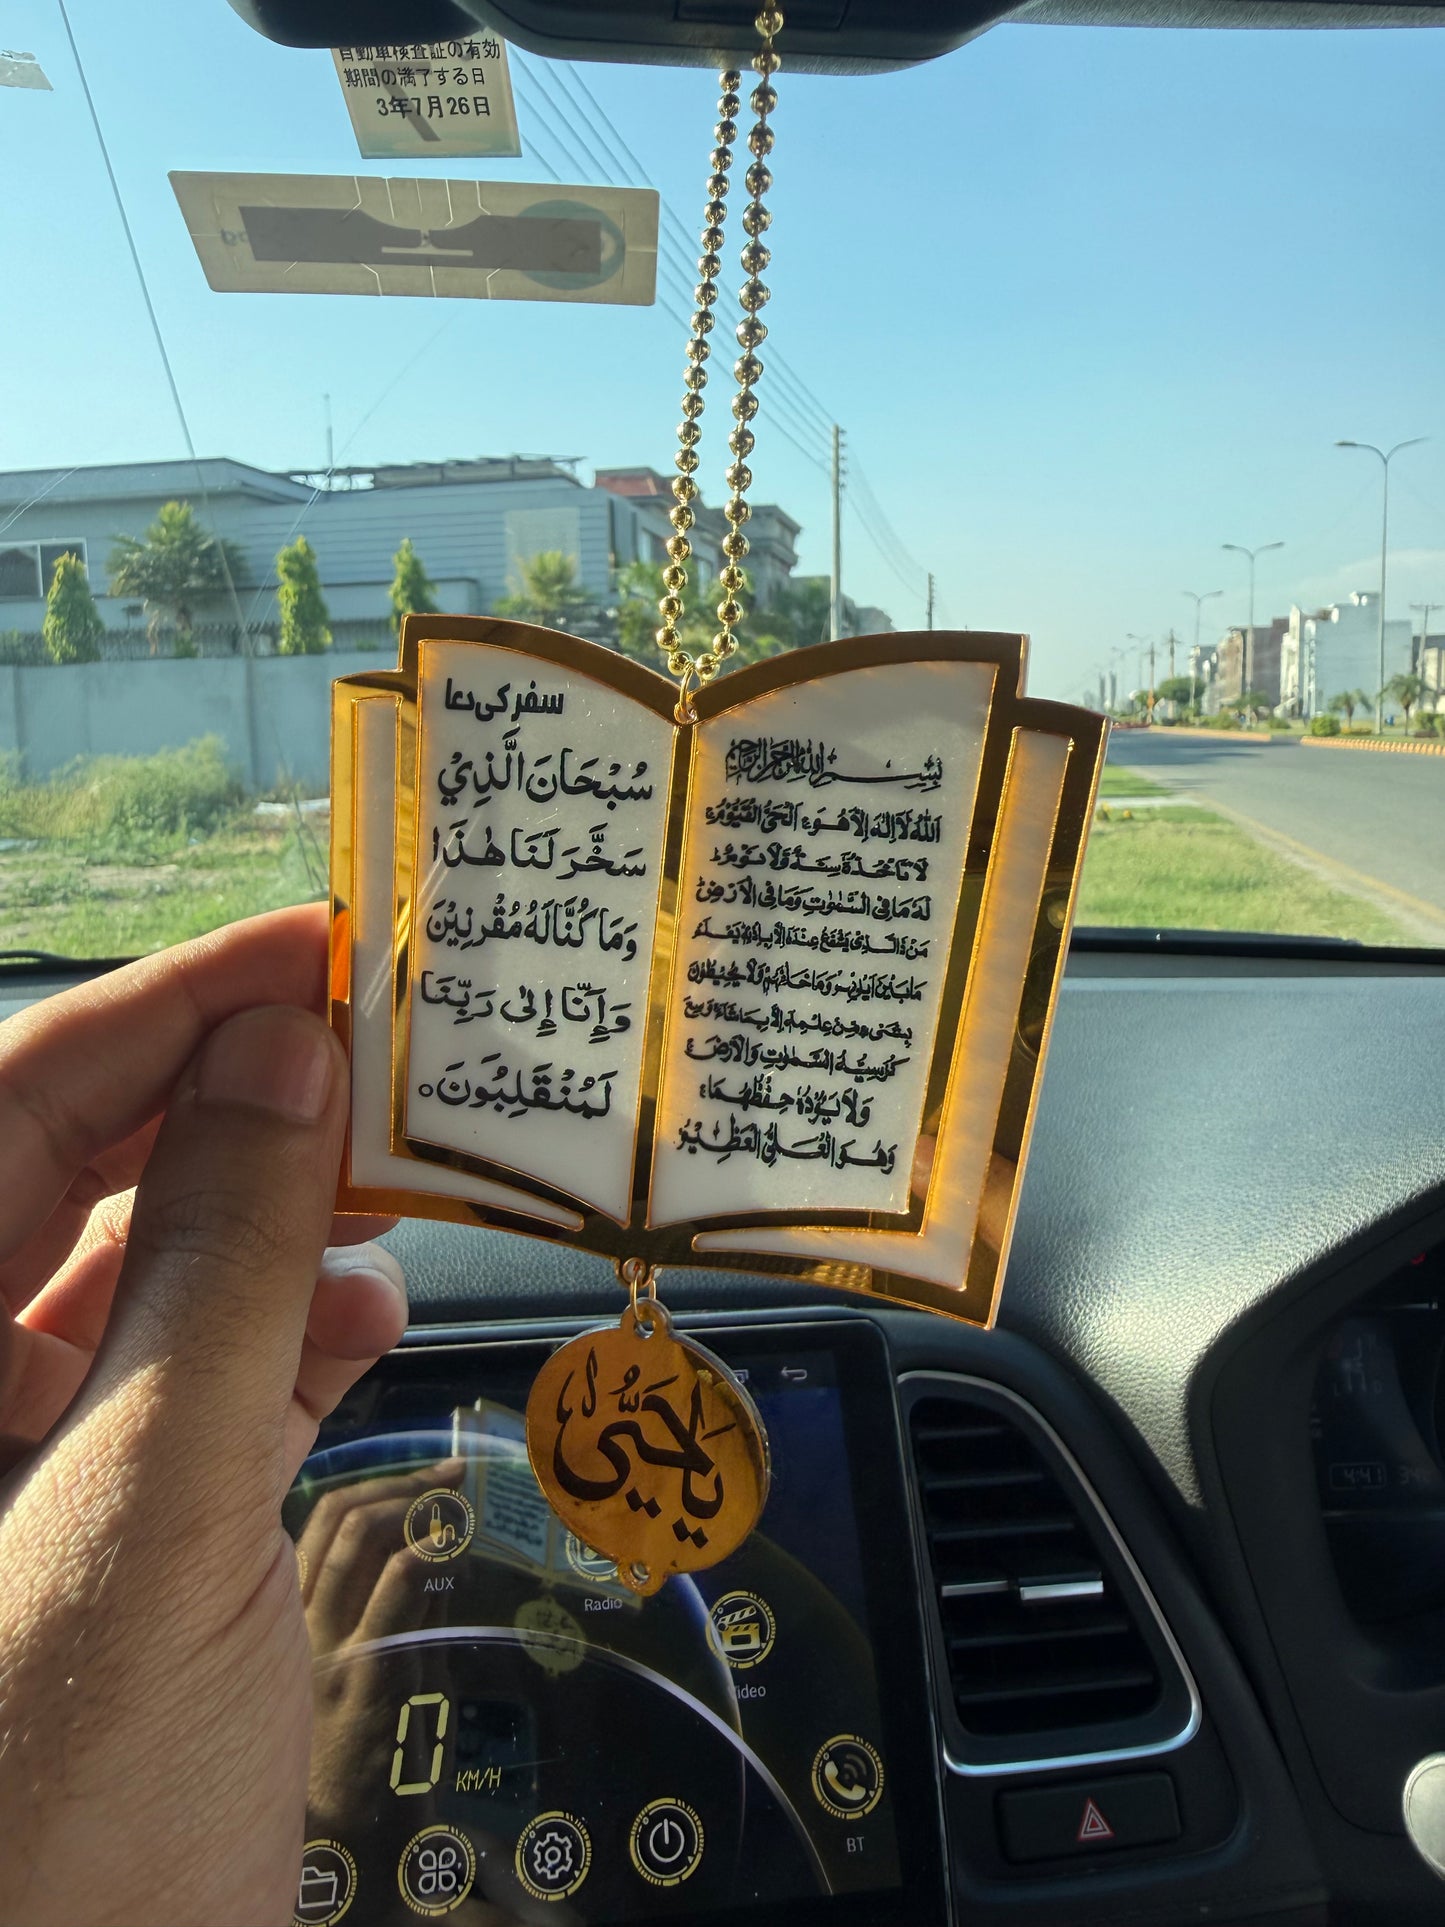 自動車検査証の有効
期間の満了する日
3年7月26日
سفر کی دعا
سُبْحَانَ الَّذِيْ
سَخَّرَ لَنَا هٰذَا
وَمَا كُنَّا لَهُ مُقْرِنِيْنَ
وَإِنَّا إِلٰى رَبِّنَا
لَمُنْقَلِبُوْنَ ○
بِسْمِ اللهِ الرَّحْمٰنِ الرَّحِيْمِ
اَللّٰهُ لَآ اِلٰهَ اِلَّا هُوَ ۚ اَلْحَيُّ الْقَيُّوْمُ ۚ
لَا تَاْخُذُهٗ سِنَةٌ وَّلَا نَوْمٌ ؕ
لَهٗ مَا فِي السَّمٰوٰتِ وَمَا فِي الْاَرْضِ ؕ
مَنْ ذَا الَّذِيْ يَشْفَعُ عِنْدَهٗٓ اِلَّا بِاِذْنِهٖ ؕ يَعْلَمُ
مَا بَيْنَ اَيْدِيْهِمْ وَمَا خَلْفَهُمْ ۚ وَلَا يُحِيْطُوْنَ
بِشَيْءٍ مِّنْ عِلْمِهٖٓ اِلَّا بِمَا شَآءَ ۚ وَسِعَ
كُرْسِيُّهُ السَّمٰوٰتِ وَالْاَرْضَ ۚ
وَلَا يَئُوْدُهٗ حِفْظُهُمَا ۚ
وَهُوَ الْعَلِيُّ الْعَظِيْمُ
يَا حَيُّ
AUX
Radio
Video
0 KM/H
BT
4:41